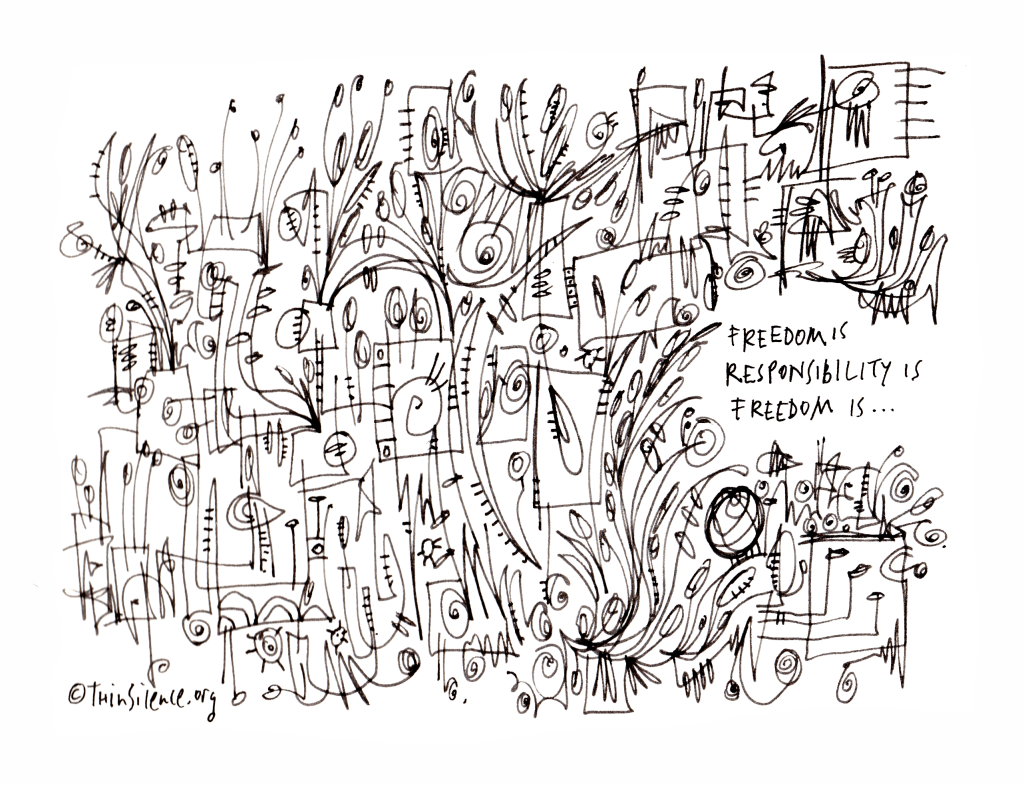 FREEDOM IS
RESPONSIBILITY IS
FREEDOM IS...
©THinSilence.org